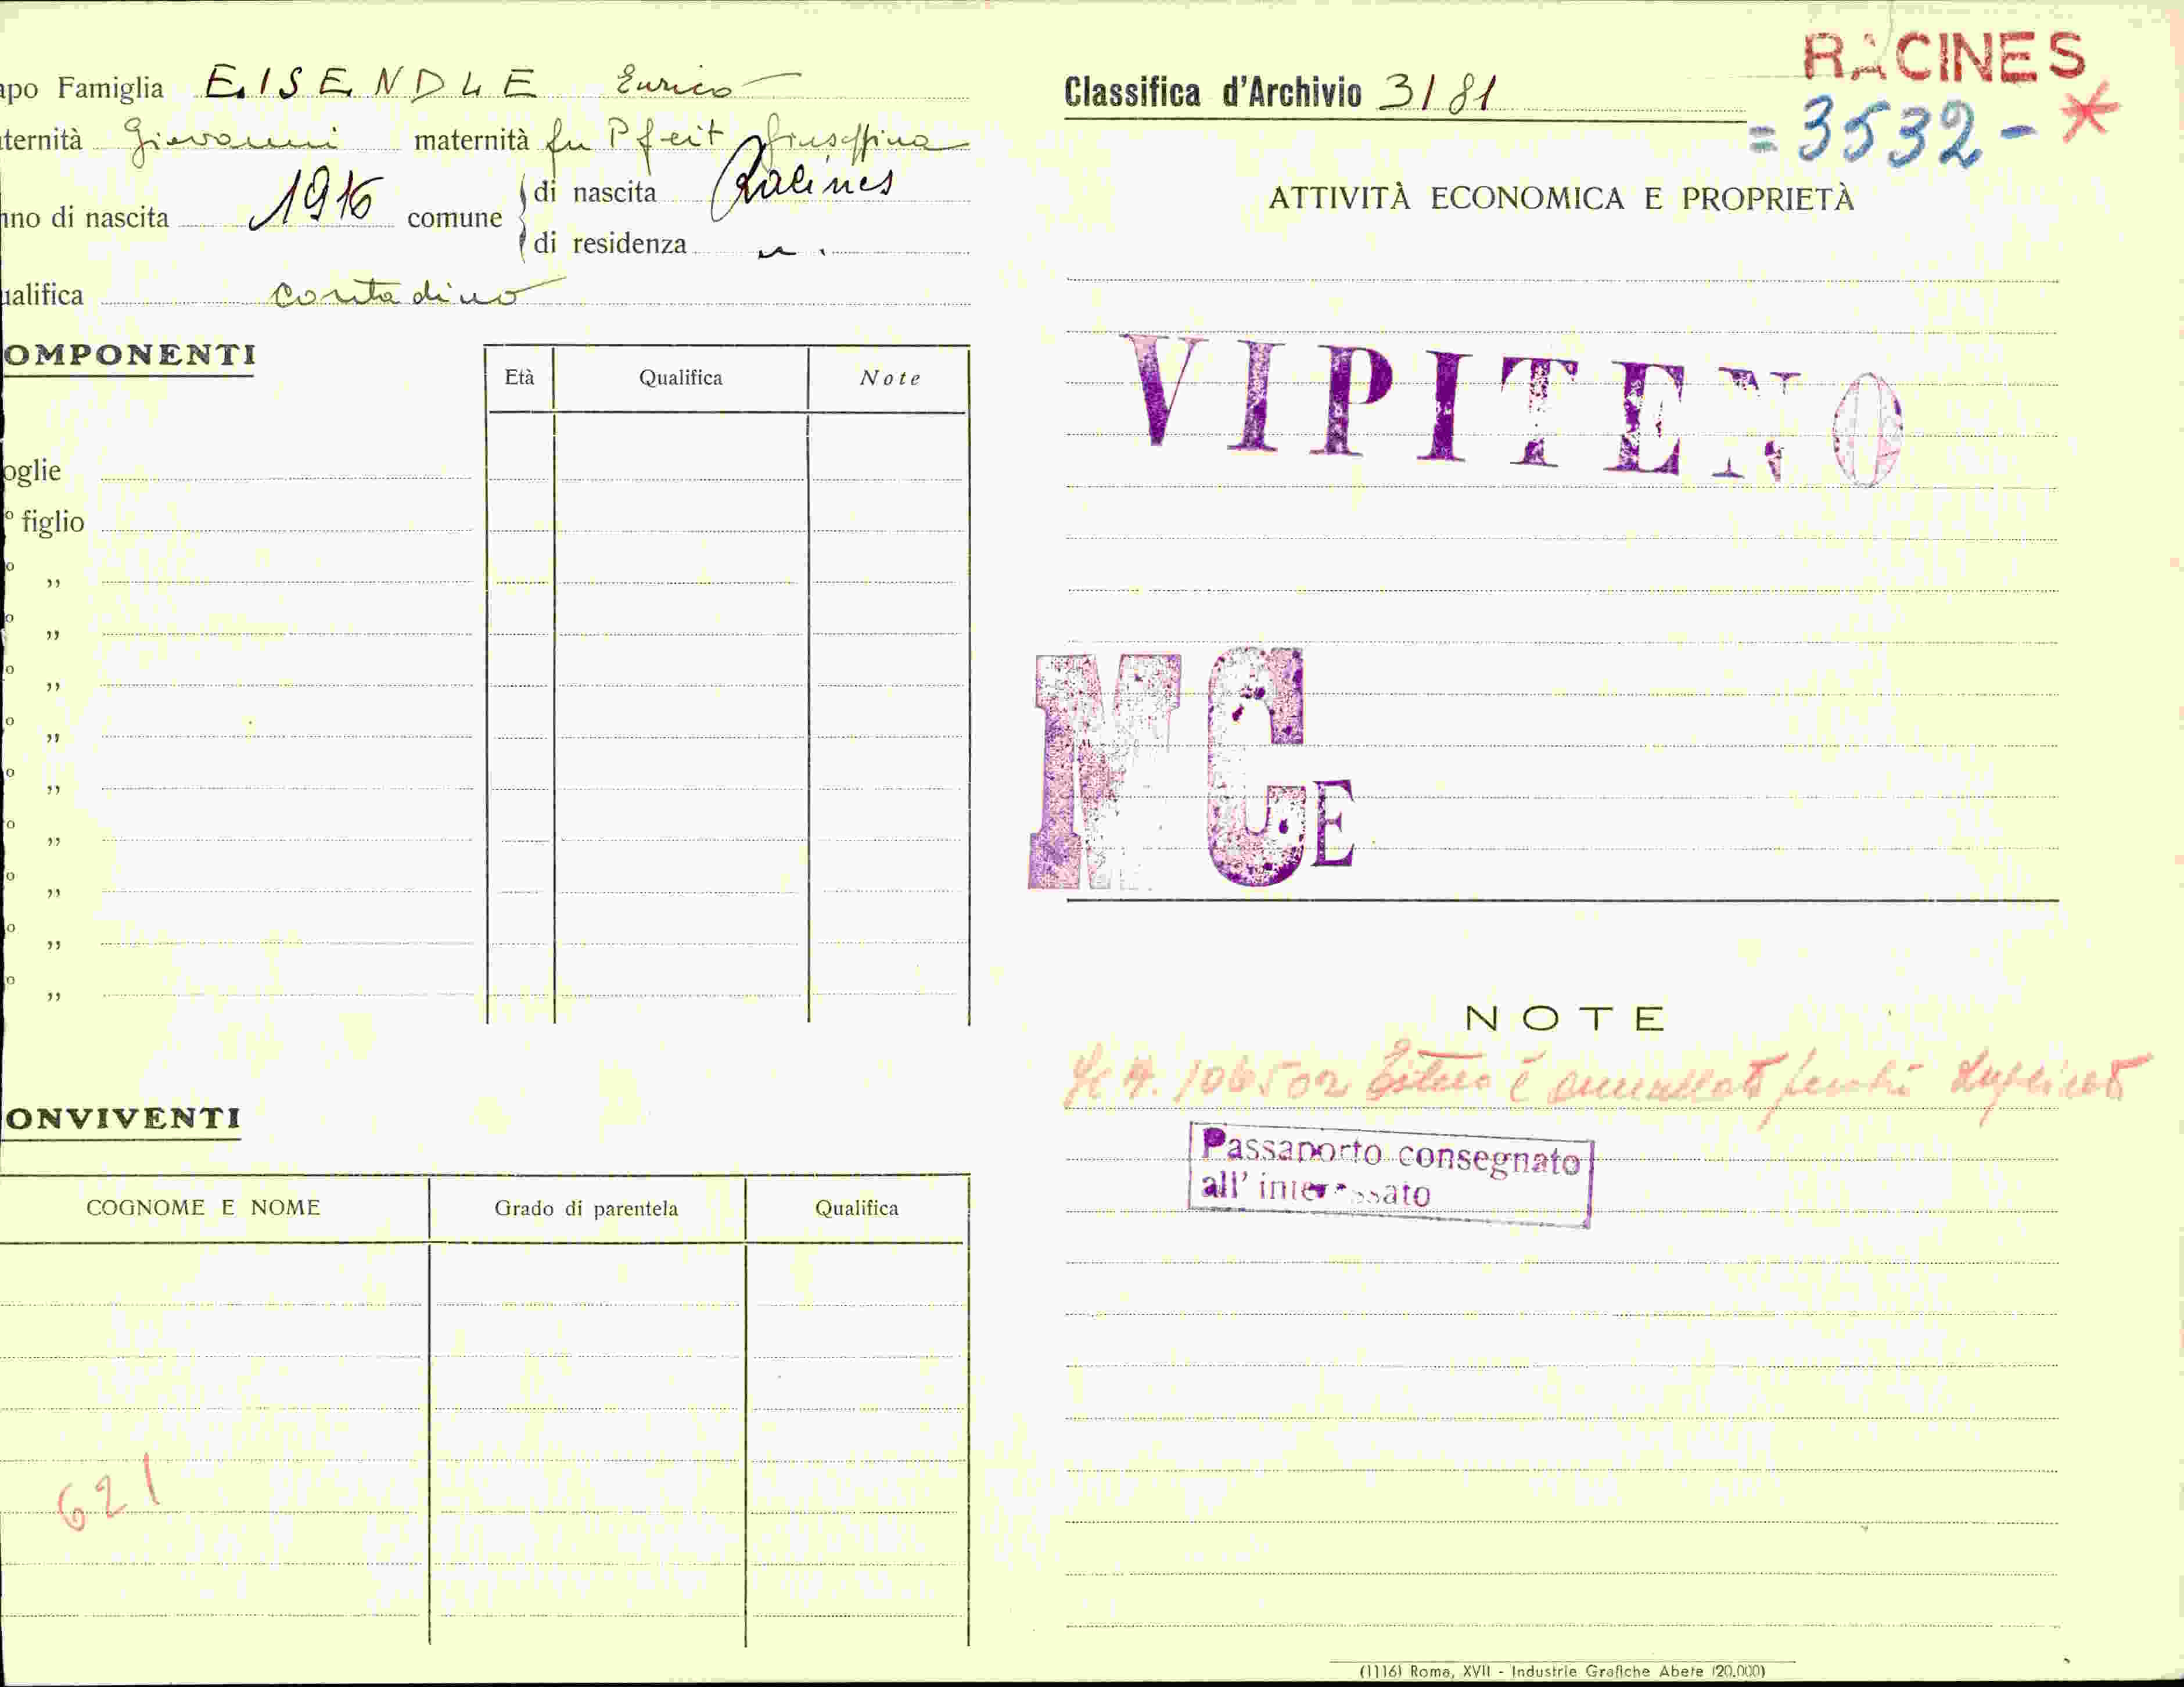 apo Famiglia EISENDLE Enrico
aternità Giovanni maternità fu Pfeit Giuseppina
nno di nascita 1916 comune di nascita Racines
di residenza
ualifica contadino
OMPONENTI
Età Qualifica Note
oglie
º figlio
º ,,
º ,,
º ,,
º ,,
º ,,
º ,,
º ,,
º ,,
º ,,
ONVIVENTI
COGNOME E NOME Grado di parentela Qualifica
621
RACINES
Classifica d'Archivio 3/81
= 3532 - *
ATTIVITÀ ECONOMICA E PROPRIETÀ
VIPITENO
MCE
NOTE
106502 è annullato perchè duplicato
Passaporto consegnato
all' interessato
(1116) Roma, XVII - Industrie Grafiche Abete (20.000)